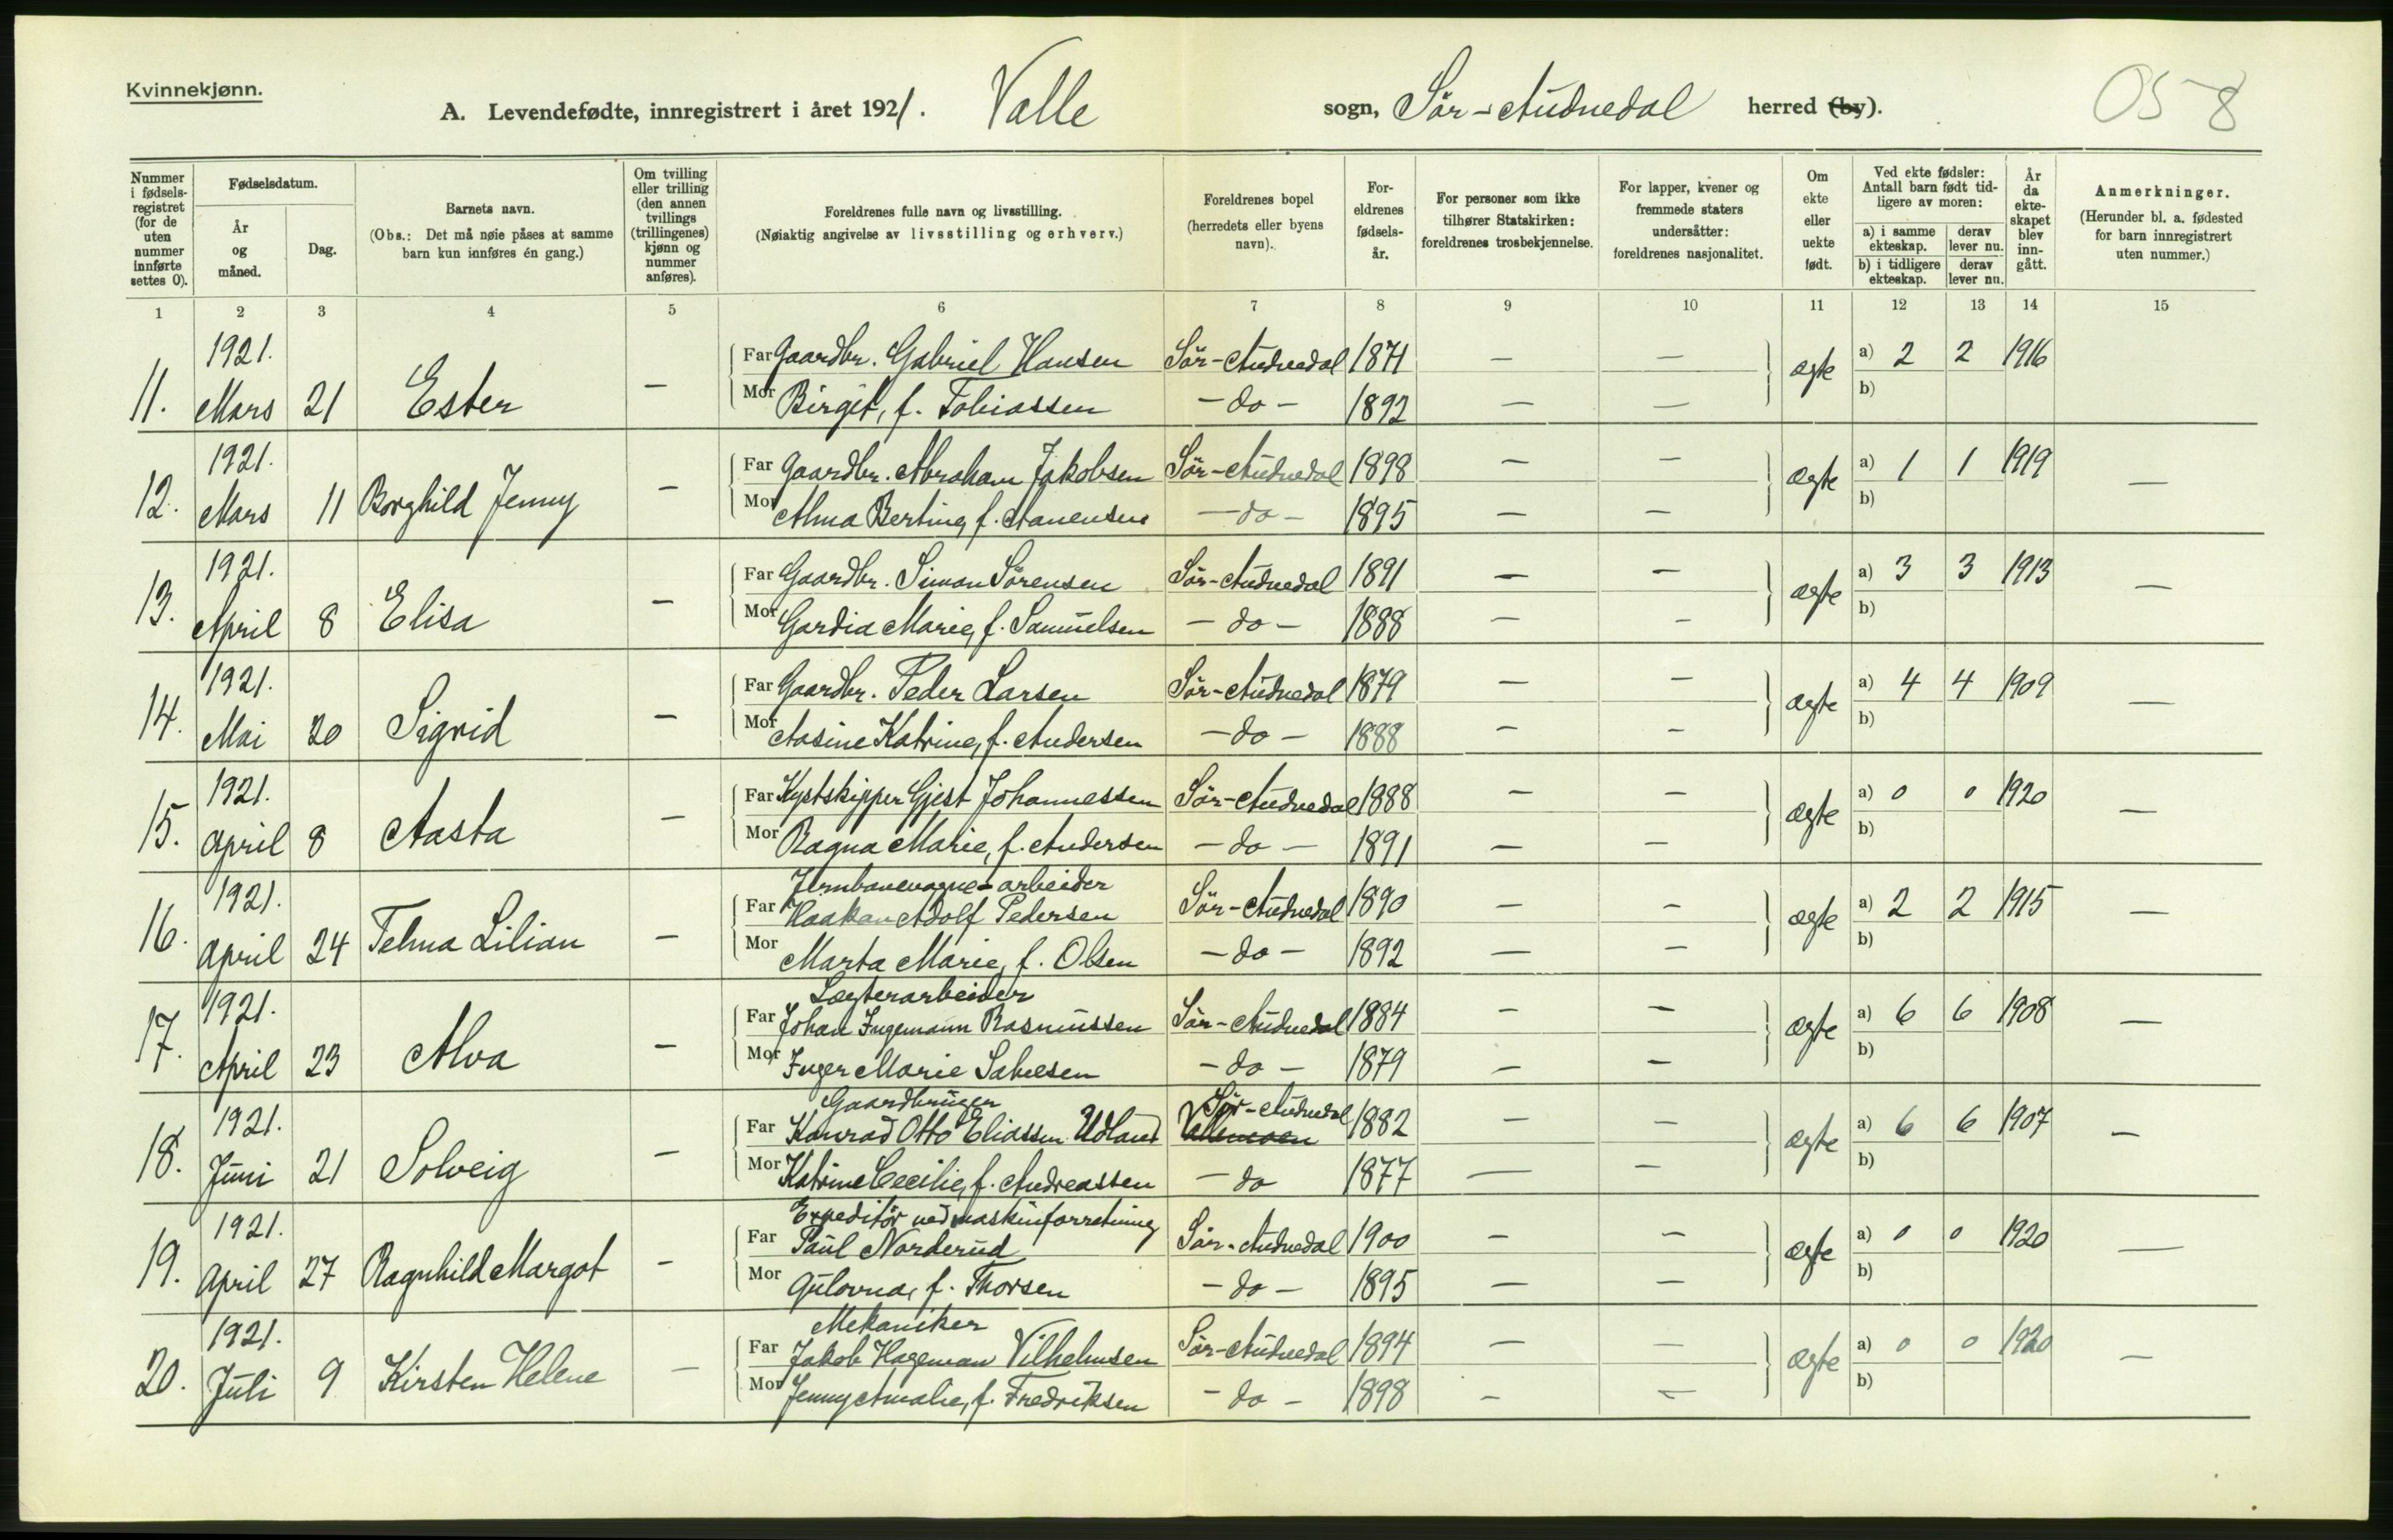 Kvinnekjønn.
A. Levendefødte, innregistrert i året 1921. Valle sogn, Sör-Audnedal herred (by).
058
Nummer i fødselsregistret (for de uten nummer innførte settes 0).
Fødselsdatum.
År og måned.
Dag.
Barnets navn.
(Obs.: Det må nøie påses at samme barn kun innføres én gang.)
Om tvilling eller trilling (den annen tvillings (trillingenes) kjønn og nummer anføres).
Foreldrenes fulle navn og livsstilling.
(Nøiaktig angivelse av livsstilling og erhverv.)
Foreldrenes bopel (herredets eller byens navn).
Foreldrenes fødselsår.
For personer som ikke tilhører Statskirken: foreldrenes trosbekjennelse.
For lapper, kvener og fremmede staters undersåtter: foreldrenes nasjonalitet.
Om ekte eller uekte født.
Ved ekte fødsler: Antall barn født tidligere av moren:
a) i samme ekteskap. derav lever nu.
b) i tidligere ekteskap. derav lever nu.
År da ekteskapet blev inngått.
Anmerkninger.
(Herunder bl. a. fødested for barn innregistrert uten nummer.)
1 2 3 4 5 6 7 8 9 10 11 12 13 14 15
11. 1921. Mars 21 Ester —
Far Gaardbr. Gabriel Hansen Sör-Audnedal 1871 — — ægte a) 2 2 1916
Mor Birgit, f. Tobiassen — do — 1892 — — b)
12. 1921. Mars 11 Borghild Jenny —
Far Gaardbr. Abraham Jakobsen Sör-Audnedal 1898 — — ægte a) 1 1 1919 —
Mor Alma Bertine, f. Aanensen — do — 1895 — — b)
13. 1921. April 8 Elisa —
Far Gaardbr. Simon Sörensen Sör-Audnedal 1891 — — ægte a) 3 3 1913 —
Mor Gardia Marie, f. Samuelsen — do — 1888 — — b)
14. 1921. Mai 20 Sigrid —
Far Gaardbr. Peder Larsen Sör-Audnedal 1879 — — ægte a) 4 4 1909 —
Mor Aasine Katrine, f. Andersen — do — 1888 — — b)
15. 1921. April 8 Aasta —
Far Kystskipper Gjest Johannessen Sör-Audnedal 1888 — — ægte a) 0 0 1920 —
Mor Ragna Marie, f. Andersen — do — 1891 — — b)
16. 1921. April 24 Telma Lilian —
Jernbanevogne-arbeider
Far Haakan Adolf Pedersen Sör-Audnedal 1890 — — ægte a) 2 2 1915 —
Mor Marta Marie, f. Olsen — do — 1892 — — b)
17. 1921. April 23 Alva —
Lægterarbeider
Far Johan Ingemann Rasmussen Sör-Audnedal 1884 — — ægte a) 6 6 1908 —
Mor Inger Marie Salvesen — do — 1879 — — b)
18. 1921. Juni 21 Solveig —
Gaardbruger Sör-Audnedal
Far Konrad Otto Eliassen Udland 1882 — — ægte a) 6 6 1907 —
Mor Katrine Cecilie, f. Andreassen — do 1877 — — b)
19. 1921. April 27 Ragnhild Margot —
Expeditör ved maskinforretning
Far Paul Norderud Sör-Audnedal 1900 — — ægte a) 0 0 1920 —
Mor Gulovna, f. Thorsen — do — 1895 — — b)
20. 1921. Juli 9 Kirsten Helene —
Mekaniker
Far Jakob Hageman Vilhelmsen Sör-Audnedal 1894 — — ægte a) 0 0 1920 —
Mor Jenny Amalie, f. Fredriksen — do — 1898 — — b)